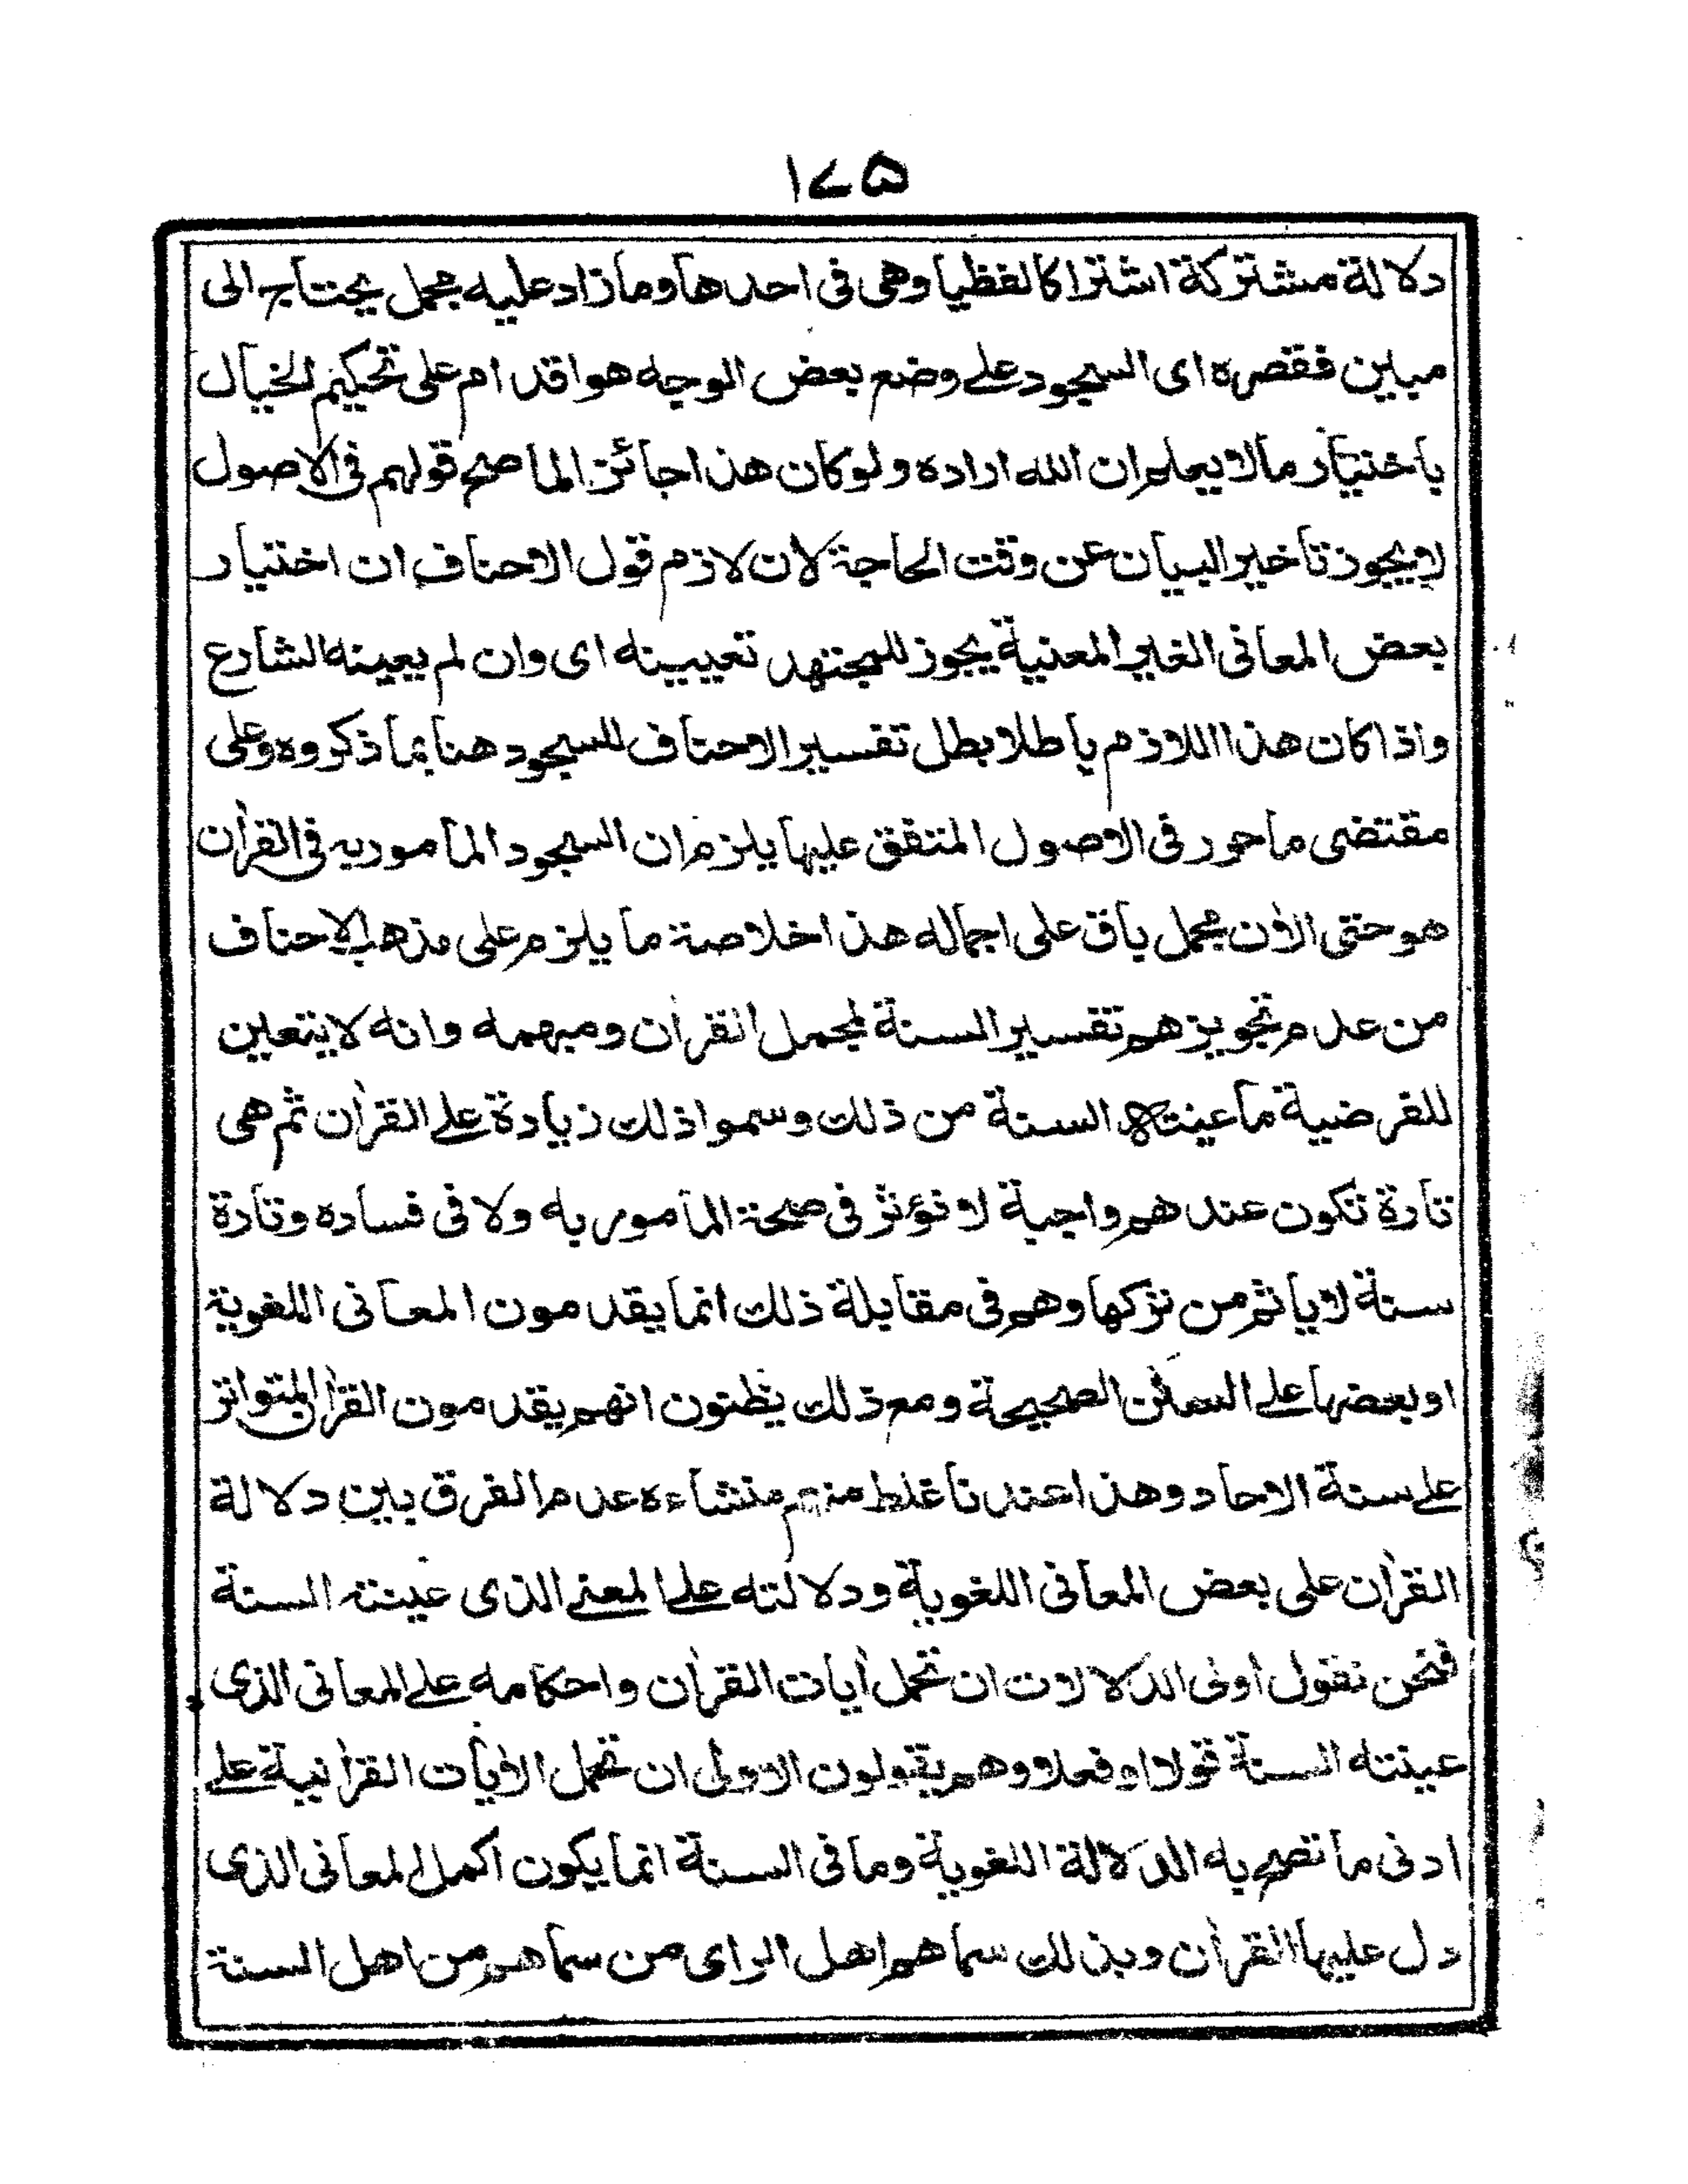 ١٧٥
دلالة مشتركة اشتراكا لفظيا وهى فى احدها وما زاد عليه مجمل يحتاج الى
مبين فقصره اى السجود على وضع بعض الوجه هو اقدام على تحكيم الخيال
باختيار مالا يعلم ان الله اراده ولو كان هذا جائزا لما صح قولهم فى الاصول
لا يجوز تاخير البيان عن وقت الحاجة لان لازم قول الاحناف ان اختيار
بعض المعانى الغير المعنية يجوز للمجتهد تعيينه اى وان لم يعينه الشارع
واذا كان هذا اللازم باطلا بطل تفسير الاحناف للسجود هنا بما ذكروه وعلى
مقتضى ما حرر فى الاصول المتفق عليها يلزم ان السجود المامور به فى القرأن
هو حتى الأن مجمل باق على اجماله هذا خلاصة ما يلزم على مذهب الاحناف
من عدم تجويزهم تفسير السنة لمجمل القرأن ومبهمه وانه لا يتعين
للفرضية ما عينته السنة من ذلك وسموا ذلك زيادة على القرأن ثم هى
تارة تكون عندهم واجبة لا تؤثر فى صحة المامور به ولا فى فساده وتارة
سنة لا يا ثم من تركها وهم فى مقابلة ذلك انما يقدمون المعانى اللغوية
او بعضها على السنن الصحيحة ومع ذلك يظنون انهم يقدمون القرأن المتواتر
على سنة الاحاد وهذا عندنا غلط منهم منشاءه عدم الفرق بين دلالة
القرأن على بعض المعانى اللغوية ودلالته على المعنى الذى عينته السنة
فنحن نقول أولى الدلالات ان تحمل أيات القرأن واحكامه على المعانى الذى
عينته السنة قولا او فعلا وهم يقولون الاولى ان تحمل الأيات القرأنية على
ادنى ما تصح به الدلالة اللغوية وما فى السنة انما يكون اكمل المعانى الذى
دل عليها القرأن وبذلك سماهم اهل الراى من سماهم من اهل السنة